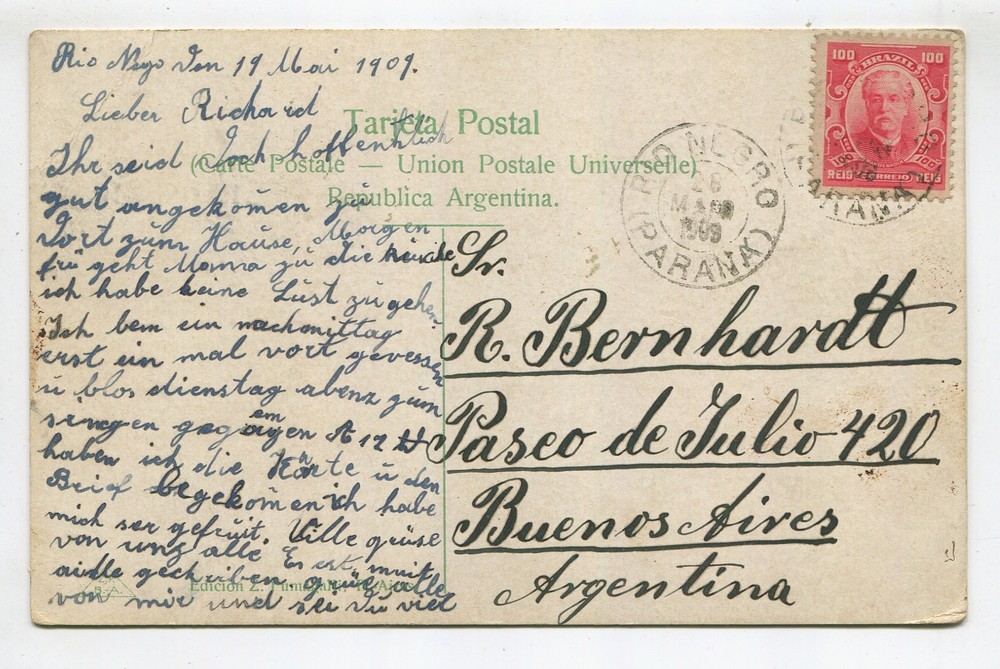 Rio Negro Den 19 Mai 1909.
Lieber Richard
Ihr seid doch hoffentlich
gut angekomen zu
dort zum Hause, Morgen
frü geht Mama zu die
ich habe keine Lust zu gehen.
Ich bem ein nachmittag
erst ein mal vort gevessen
u blos dienstag abenz zum
singen gegangen A 12
haben ich die Kärte u den
Brief begekomen ich habe
mich ser gefruit. Ville grüse
von uns alle Es ist mnit
aidle geschriben grüse alle
von mir und sei Du viel
Tarjeta Postal
(Carte Postale — Union Postale Universelle)
Republica Argentina.
Sr.
R. Bernhardt
Paseo de Julio 420
Buenos Aires
Argentina
Edicion Z. Fumagalli, B. Aires
RIO NEGRO
MAIO
1909
(PARANÁ)
100 BRAZIL 100
100 100
REIS CORREIO REIS
PARANÁ